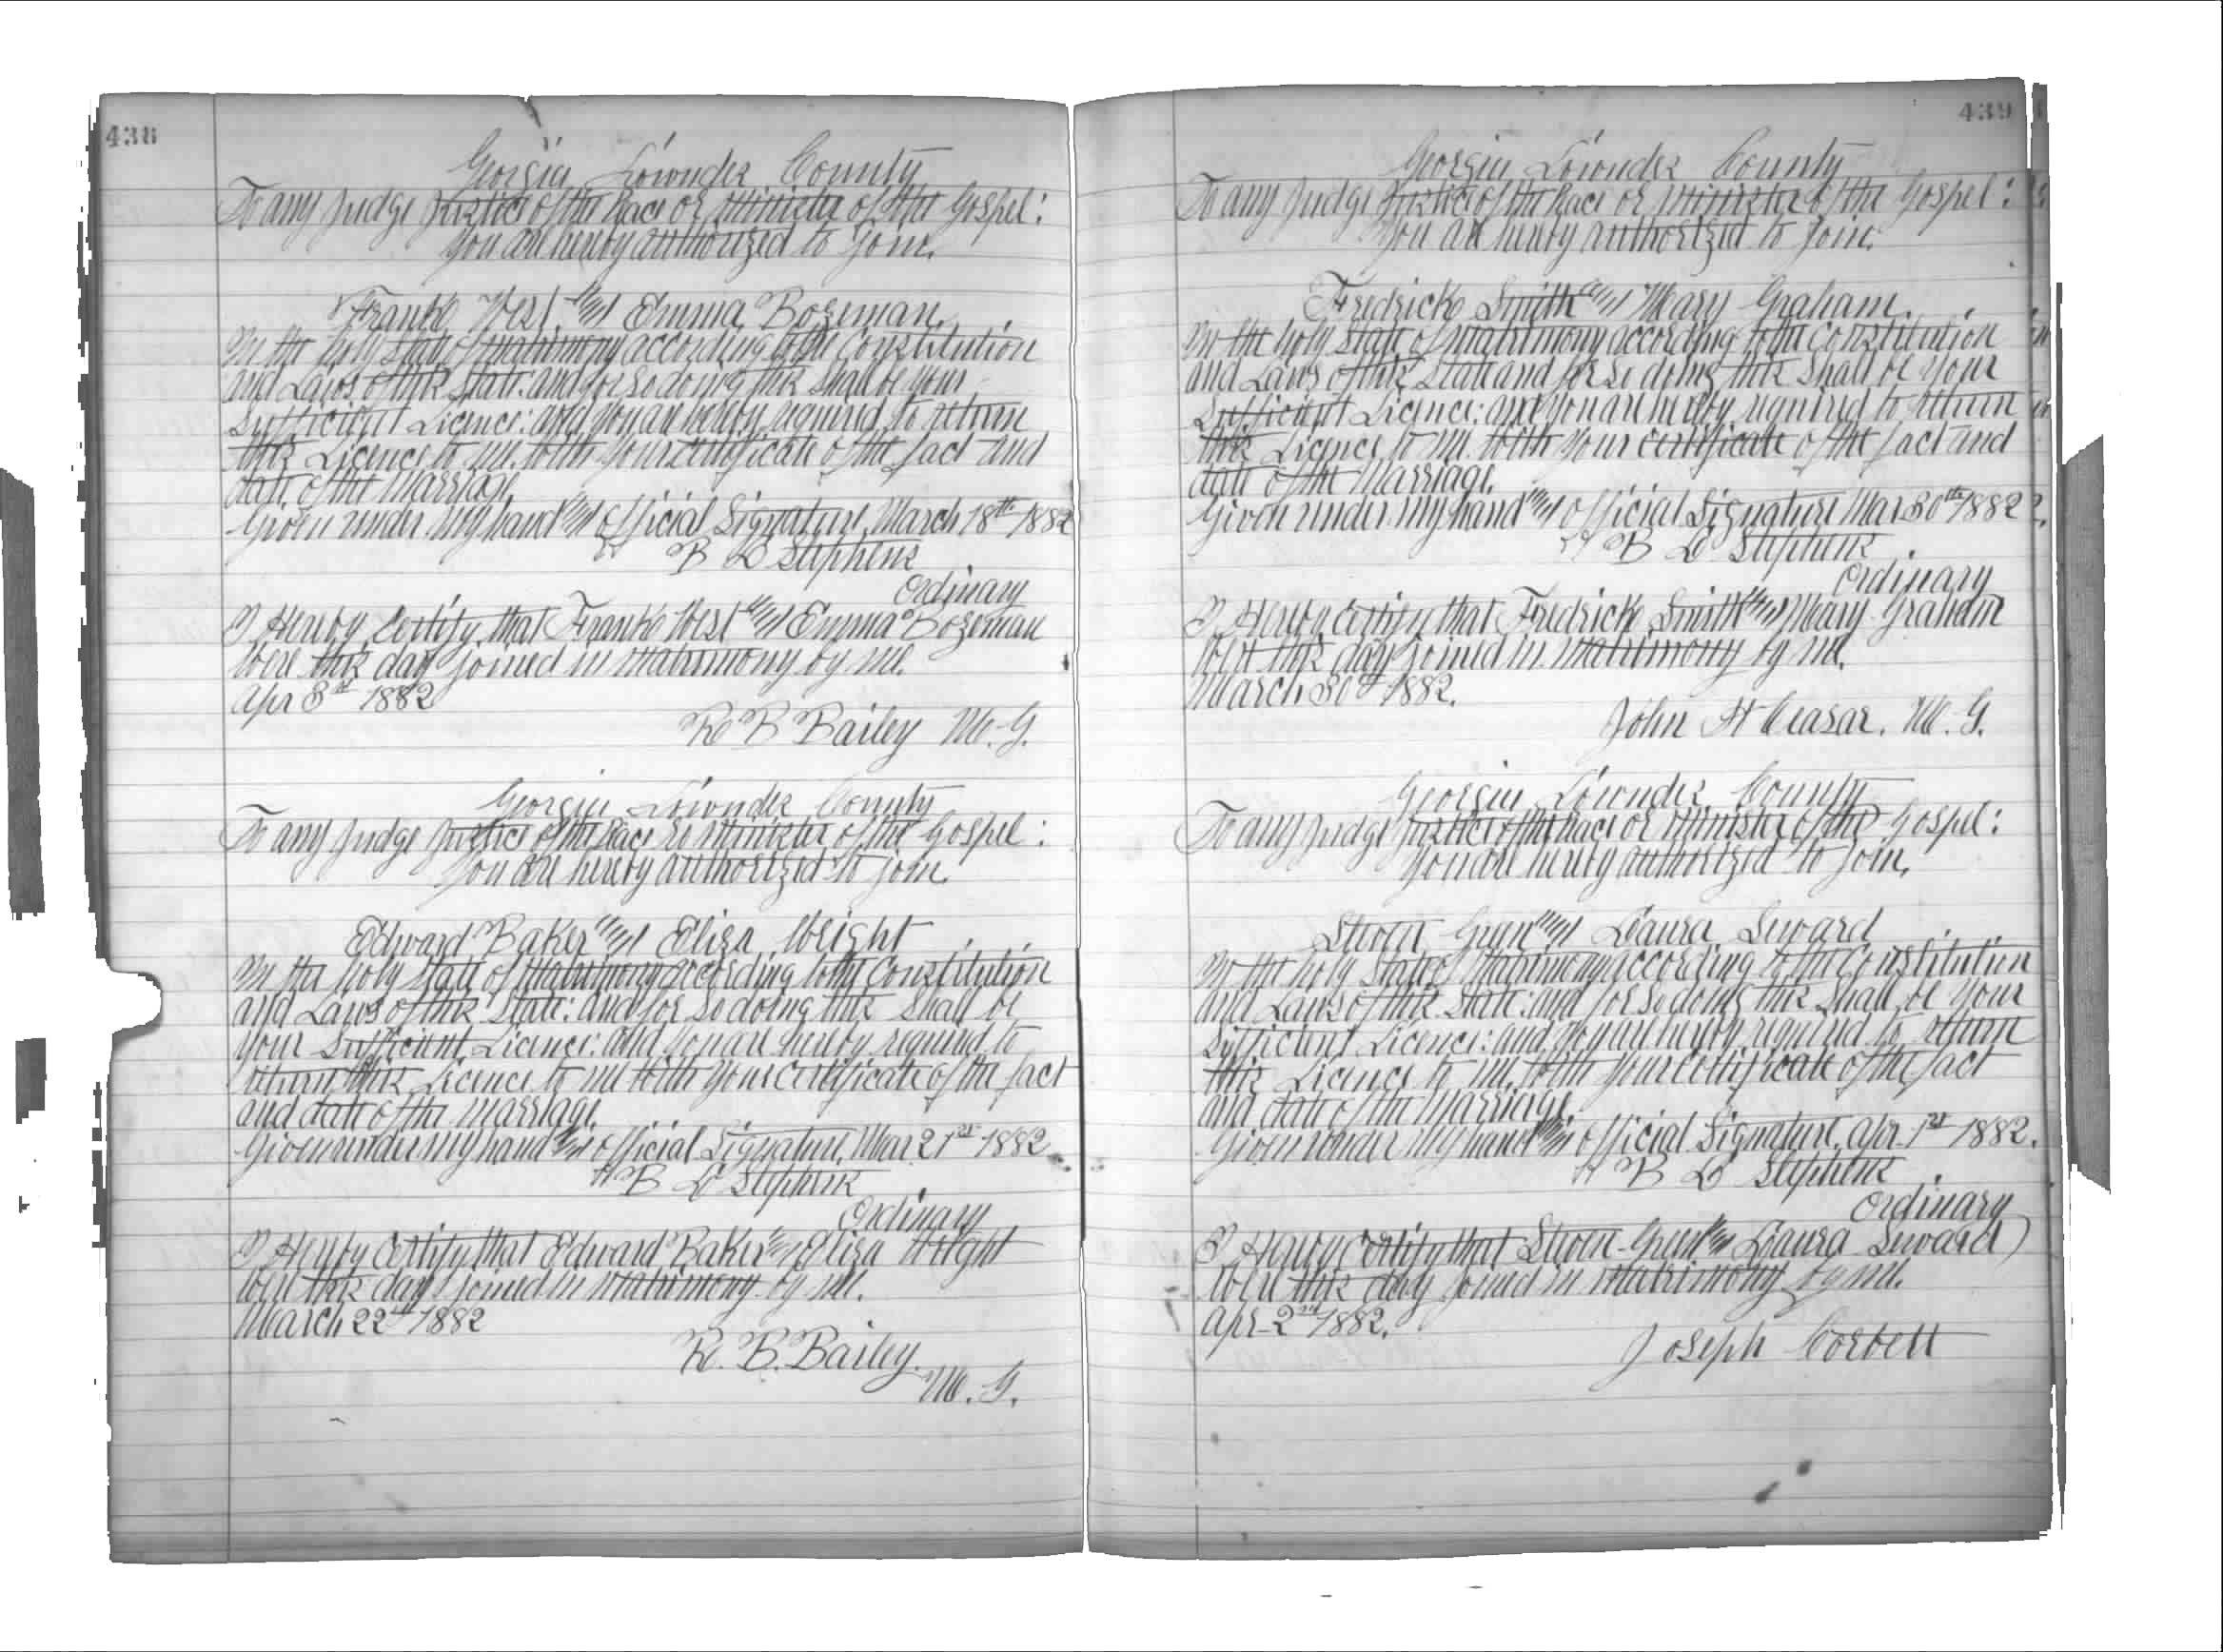 438
Georgia Lowndes County
To any Judge Justice of the Peace or Minister of the Gospel:
You are hereby authorized to join.
Frank West and Emma Bozeman.
In the holy state of matrimony according to the Constitution
and Laws of this State: and for so doing this shall be your
Sufficient Licence: and you are hereby required to return
this Licence to me. with your certificate of the fact and
date of the Marriage.
Given under my hand and official Signature, March 18th 1882
B L Stephens
Ordinary
I Hereby Certify that Frank West and Emma Bozeman
were this day joined in matrimony by me.
Apr 8th 1882
R B Bailey M. G.
Georgia Lowndes County
To any Judge Justice of the Peace or Minister of the Gospel:
You are hereby authorized to join.
Edward Baker and Eliza Wright
In the holy state of matrimony according to the Constitution
and Laws of this State: and for so doing this shall be
your Sufficient Licence: and you are hereby required to
return this Licence to me with your certificate of the fact
and date of the marriage.
Given under my hand and official Signature, Mar 21st 1882
B L Stephens
Ordinary
I Hereby Certify that Edward Baker and Eliza Wright
were this day joined in matrimony by me.
March 22nd 1882
R. B. Bailey.
M. G.
439
Georgia Lowndes County
To any Judge Justice of the Peace or Minister of the Gospel:
You are hereby authorized to join.
Fredrick Smith and Mary Graham.
In the holy State of matrimony according to the Constitution
and Laws of this State and for so doing this shall be your
Sufficient Licence: and you are hereby required to return
this Licence to me. with your certificate of the fact and
date of the Marriage.
Given under my hand and official Signature Mar 30th 1882
B L Stephens
Ordinary
I Hereby Certify that Fredrick Smith and Mary Graham
were this day joined in matrimony by me.
March 30th 1882.
John H Ceasar. M. G.
Georgia Lowndes County
To any Judge Justice of the Peace or Minister of the Gospel:
You are hereby authorized to join,
Green and Laura Seward
In the holy State of Matrimony according to the Constitution
and Laws of this State: and for so doing this shall be your
Sufficient Licence: and you are hereby required to return
this Licence to me. with your certificate of the fact
and date of the Marriage.
Given under my hand and official Signature, Apr 1st 1882.
B L Stephens
Ordinary
I Hereby Certify that Green and Laura Seward
were this day joined in matrimony by me.
Apr 2nd 1882.
Joseph Corbett